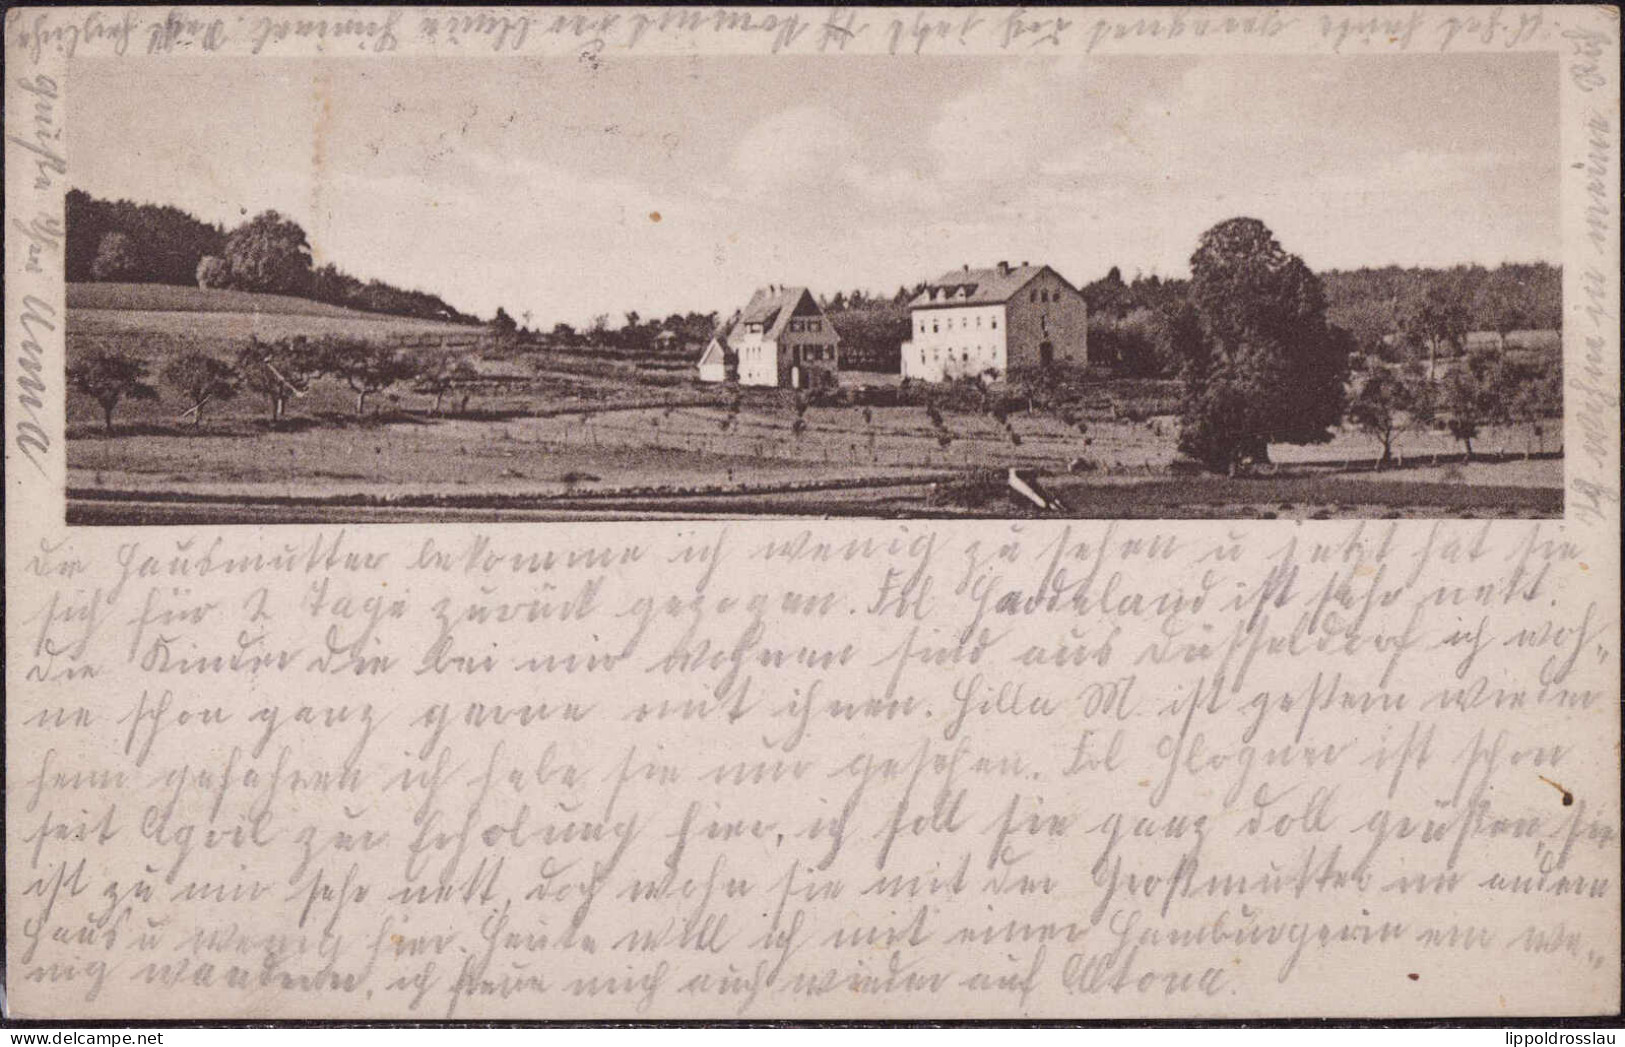 Die Hausmutter bekomme ich wenig zu sehen u jetzt hat sie
sich für 2 Tage zurück gezogen. Frl Haddeland ist sehr nett.
Die Kinder die bei mir wohnen sind aus Düsseldorf ich woh„
ne schon ganz gerne mit ihnen. Hilla M. ist gestern wieder
heim gefahren ich habe sie nur gesehen. Frl Glogner ist schon
seit April zur Erholung hier, ich soll sie ganz doll grüßen, sie
ist zu mir sehr nett, doch wohn sie mit der Großmutter im andern
Haus u wenig hier. Heute will ich mit einer Hamburgerin ein we„
nig wandern, ich freue mich auch wieder auf Altona.
Ich wohne in meinem
Es hat heute geregnet doch jetzt kommt der blaue Himmel. Recht herzliche
grüße
Anna
lippoldrosslau